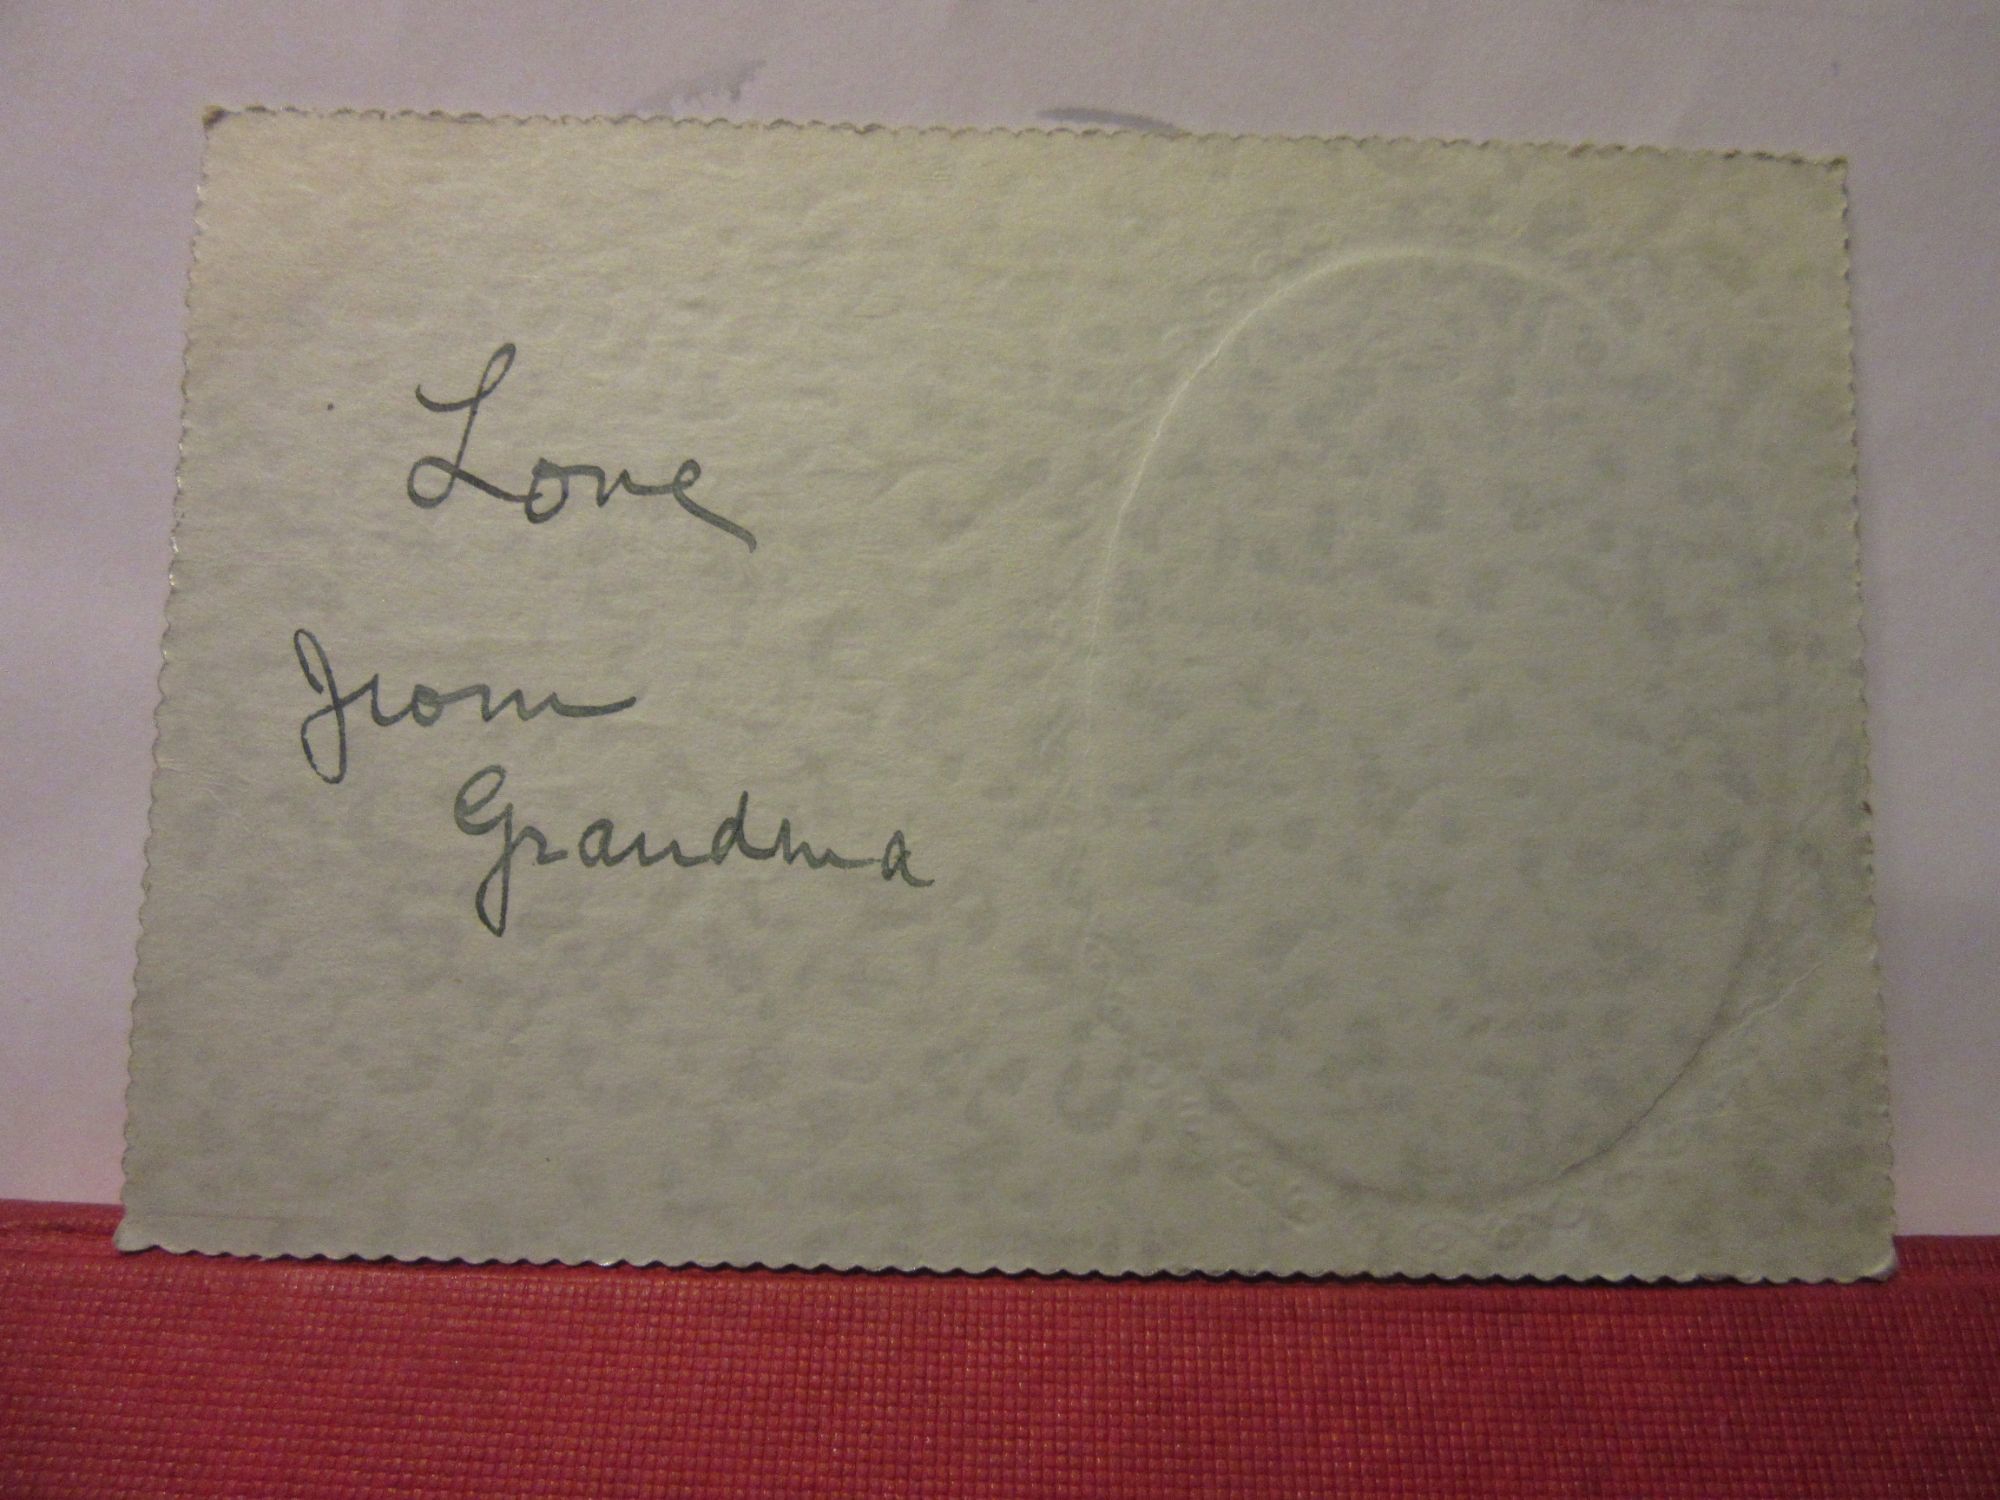 Love
From
Grandma